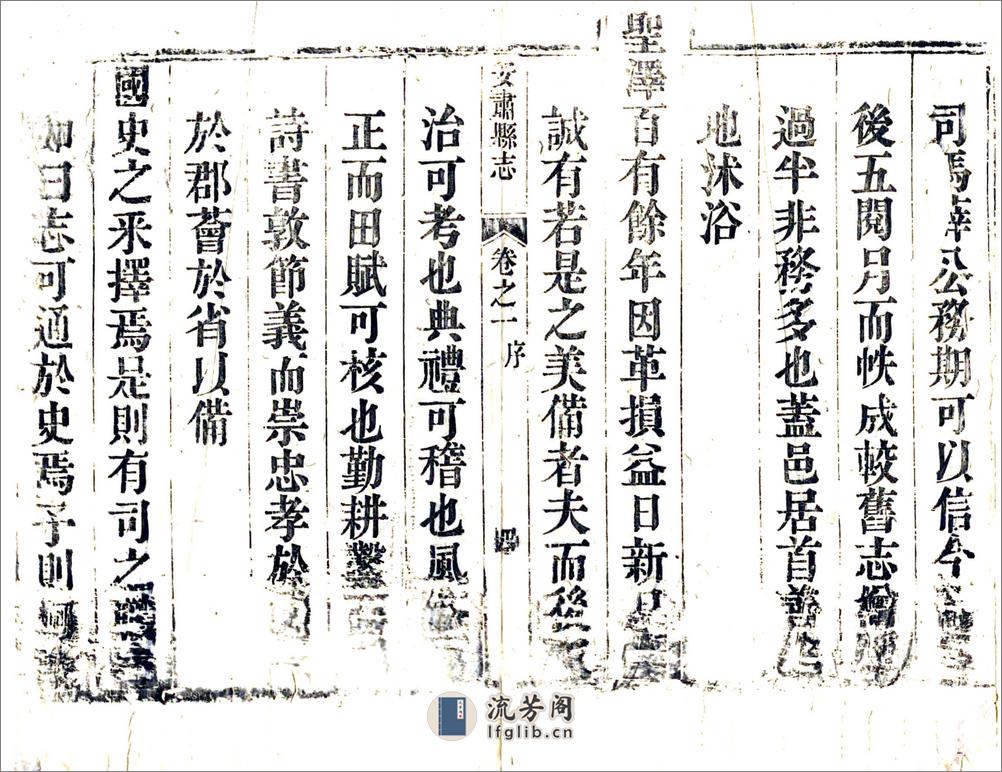 司馬　公務期可以信今
後五閱月而帙成較舊志增
過半非務多也蓋邑居首善
地沐浴
聖澤百有餘年因革損益日新
誠有若是之美備者夫而後
安肅縣志 卷之一 序 四
治可考也典禮可稽也風俗
正而田賦可核也勤耕鑿
詩書敦節義而崇忠孝於
於郡薈於省以備
國史之采擇焉是則有司之職
如曰志可通於史焉予則何
流芳阁
lfglib.cn